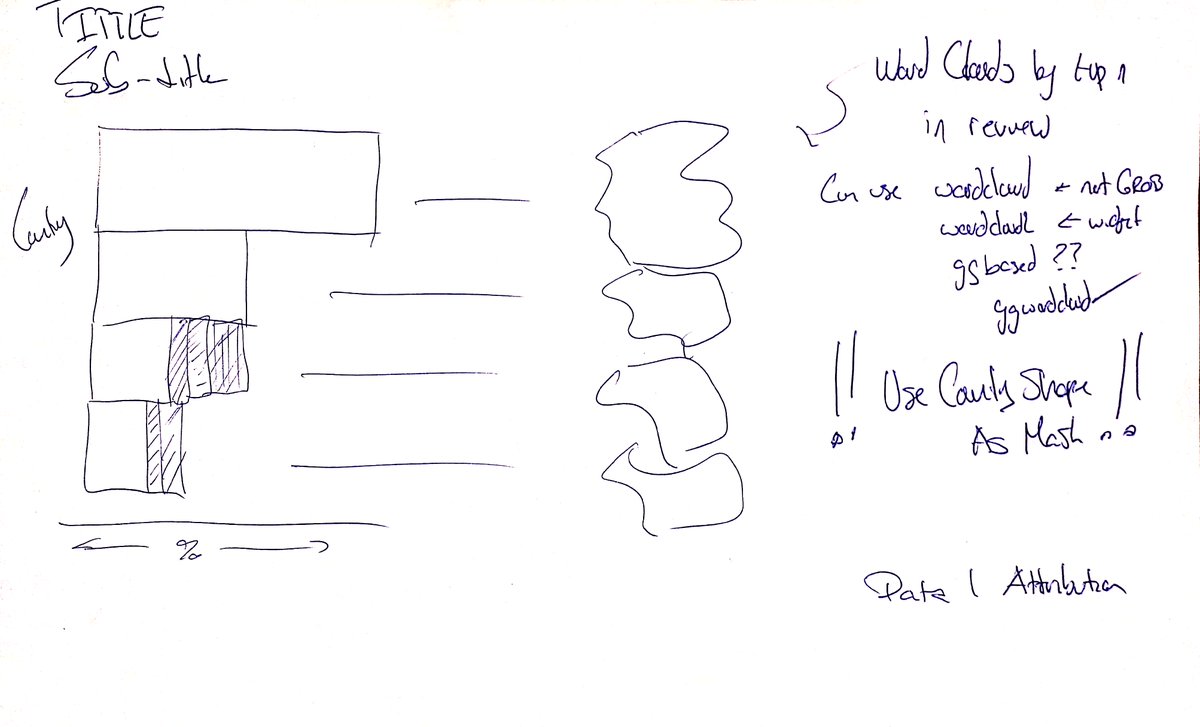 TITLE
Sub-title
County
%
Word Clouds by top n
in review
Can use wordcloud ← not GROB
wordcloud2 ← widget
gg based ??
ggwordcloud ✓
!! Use County Shape !!
As Mask
Data | Attribution